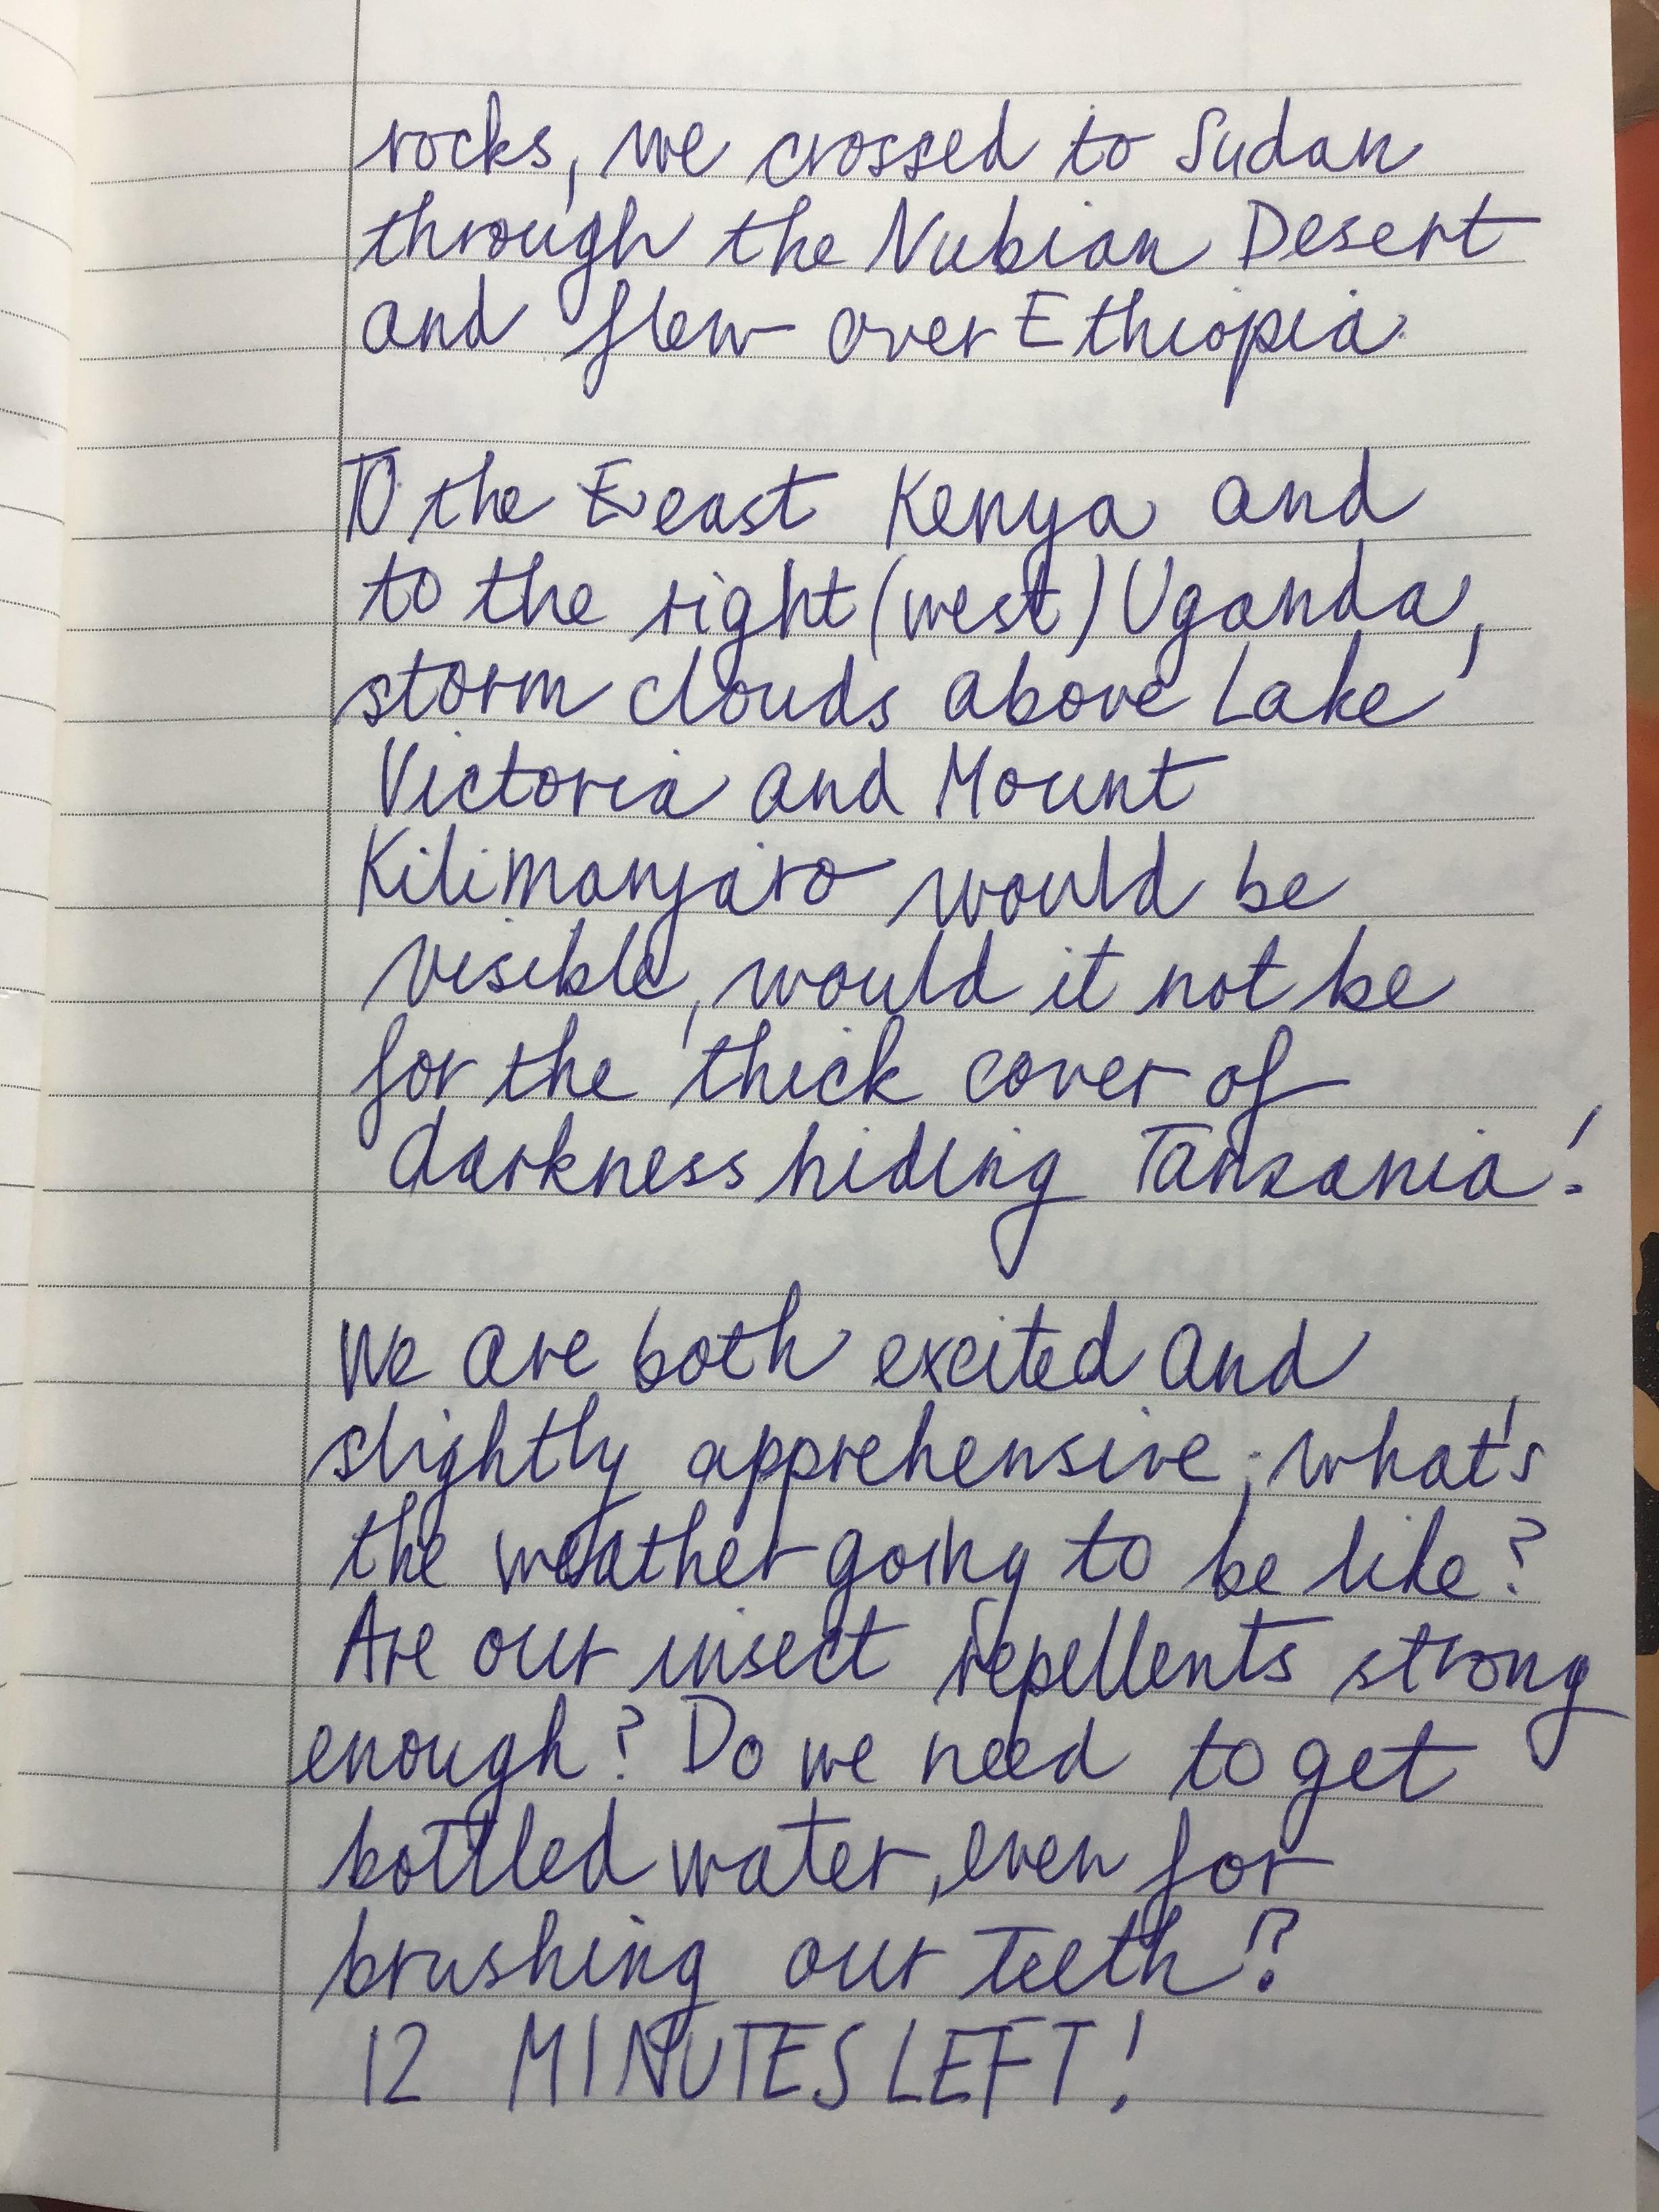 rocks, we crossed to Sudan
through the Nubian Desert
and flew over Ethiopia.
To the east Kenya and
to the right (west) Uganda,
storm clouds above Lake
Victoria and Mount
Kilimanjaro would be
visible, would it not be
for the thick cover of
darkness hiding Tanzania!
We are both excited and
slightly apprehensive; what's
the weather going to be like?
Are our insect repellents strong
enough? Do we need to get
bottled water, even for
brushing our teeth!?
12 MINUTES LEFT!